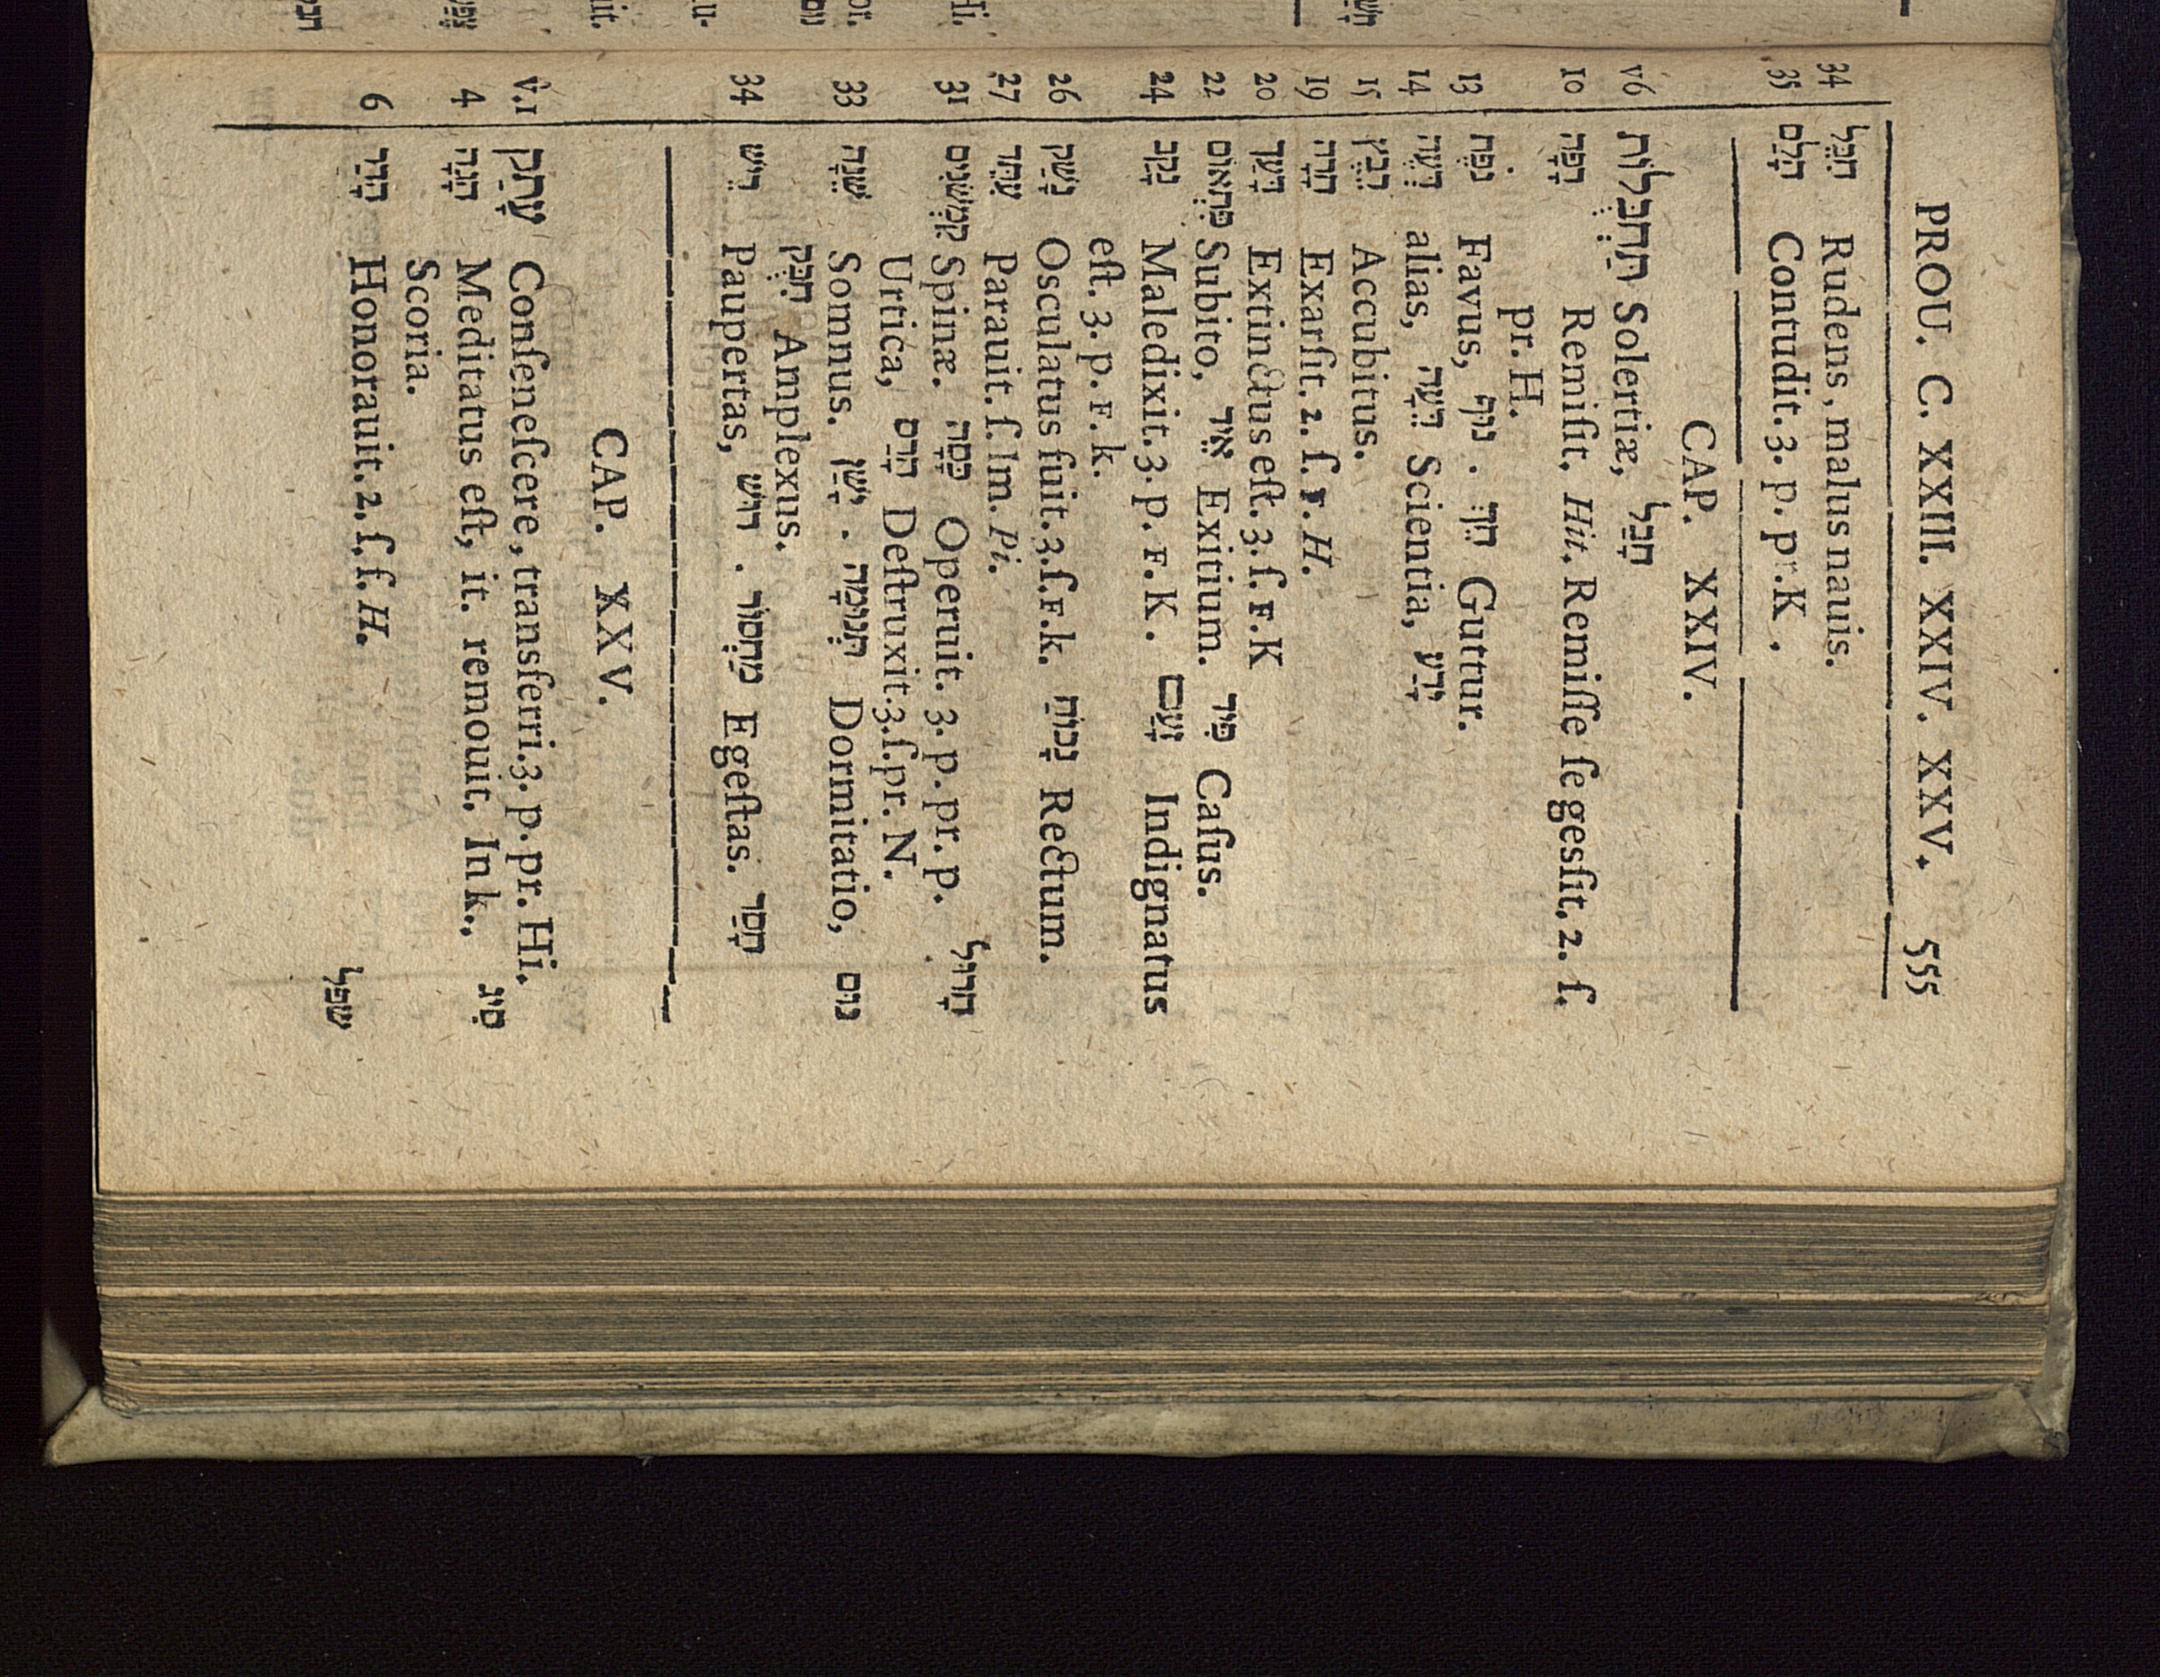 PROU. C. XXIII. XXIV. XXV. 555
34 חִבֵּל Rudens, malus nauis.
35 הָלַם Contudit. 3. p. pr. K .
CAP. XXIV.
v6 תַּחְבֻּלוֹת Solertiæ, חָבַל
10 רָפָה Remiſit. Hit. Remiſſe ſe gesſit. 2. ſ.
pr. H.
13 נֹפֶת Favus, נוּף . חֵךְ Guttur.
14 דְּעֶה alias, דֵּעָה Scientia, יָדַע
15 רֵבֶץ Accubitus.
19 חָרָה Exarſit. 2. ſ. F. H.
20 דָּעַךְ Extinctus eſt. 3. ſ. F. K
22 פִּתְאוֹם Subito, אֵיד Exitium. פִּיד Caſus.
24 נָקַב Maledixit. 3. p. F. K . זָעַם Indignatus
eſt. 3. p. F. k.
26 נָשַׁק Osculatus fuit. 3. ſ. F. k. נָכוֹחַ Rectum.
27 עָתַד Parauit. ſ. Im. Pi.
31 קִמְּשֹׂנִים Spinæ. כָּסָה Operuit. 3. p. pr. p. חָרוּל
Urtica, הָרַס Deſtruxit. 3. ſ. pr. N.
33 שֵׁנָה Somnus. יָשַׁן . תְּנוּמָה Dormitatio, נוּם
חִבֻּק Amplexus.
34 רֵישׁ Paupertas, רוּשׁ . מַחְסוֹר Egeſtas. חָסַר
CAP. XXV.
v.1 עָתַק Conſeneſcere, transferri. 3. p. pr. Hi.
4 הָגָה Meditatus eſt, it. remouit. In k., סִיג
Scoria.
6 הָדַר Honorauit. 2. ſ. f. H.
שפל